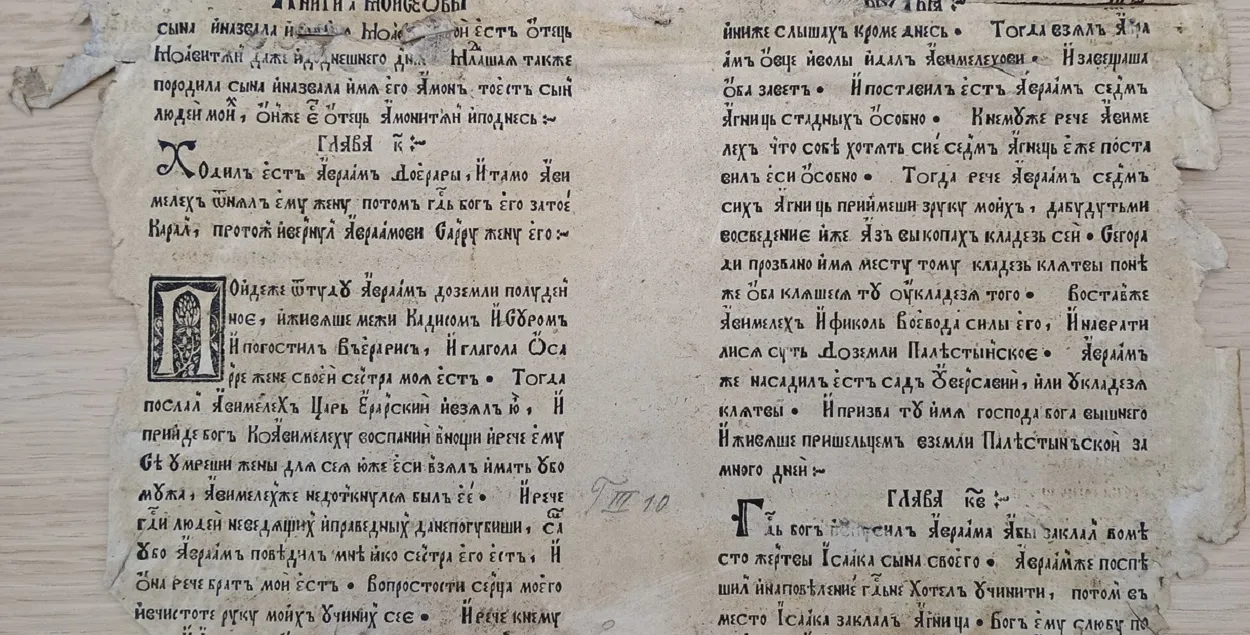 КНИГИ А МОИСЕОВЫ
сына и назвала и Моа ои естъ ѿтець
Моавитяи даже и додне̑шнего дня Млашая также
породила сына и назвала имя его Амонъ тоесть сын
людеи моих, ѿнже е҃ ѿтець Амонитяи иподнесь:~
ГЛАВА к҃:~
Ходилъ естъ Авраамъ доерары, И тамо Ави
мелехъ ѿнялъ ему жену потомъ гдь богъ его затое
Каралъ, протож ивернул Авраамови Сарру жену его:~
Пойдеже ѿтуду Авраамъ доземли полуден
ное, иживяше межи Кадисомъ И Суромъ
И погостилъ Въерарисъ, И глагола Оса
рре жене своеи сестра моя естъ • Тогда
послал Авимелехъ Царь Ерарский ивзялъ ю, И
прииде богъ КоАвимелеху воспании вночи ирече ему
Се умреши жены для сея юже еси взялъ имать убо
мужа, Авимелехже недоткнулся былъ ее • И рече
гди людеи неведящих иправедных данепогубиши, са
убо Авраамъ поведилъ мне яко сестра его естъ, И
Она рече братъ мои естъ • Вопростости серца моего
ивчистоте руку моихъ учиних сее • И рече кнему
БЫТЬЯ :~
ининже слышахъ кроме днесь • Тогда взялъ Авра
амъ овце иволы идалъ Авимелехови • И завещаша
оба заветъ • И поставилъ естъ Авраамъ седмъ
Агниць стадныхъ особно • Кнемуже рече Авиме
лехъ что собѣ хотять сие седмъ Агнець еже поста
вилъ еси особно • Тогда рече Авраамъ седмъ
сихъ Агниць приимеши зруку моихъ, дабудутьми
восведение иже Азъ выкопахъ кладезь сеи • Сегора
ди прозвано имя месту тому кладезь клятвы поне
же оба кляшеся ту укладезя того • Воставже
Авимелехъ И фиколь Воевода силы его, И наврати
лися суть Доземли Палѣстынское • Авраамъ
же насадилъ естъ садъ Уверсавии, или укладезя
клятвы • И призва ту имя господа бога вышнего
И живяше пришельцемъ вземли Палѣстынъской за
много днеи:~
ГЛАВА к҃в:~
Гдь богъ Авраама Абы заклал вомѣ
сто жертвы Ісаака сына своего • Авраамже поспѣ
шил инаповѣление гдьне Хотел учинити, потом въ
место Ісаака заклалъ Агница • Богъ ему слюбу по
Т III 10